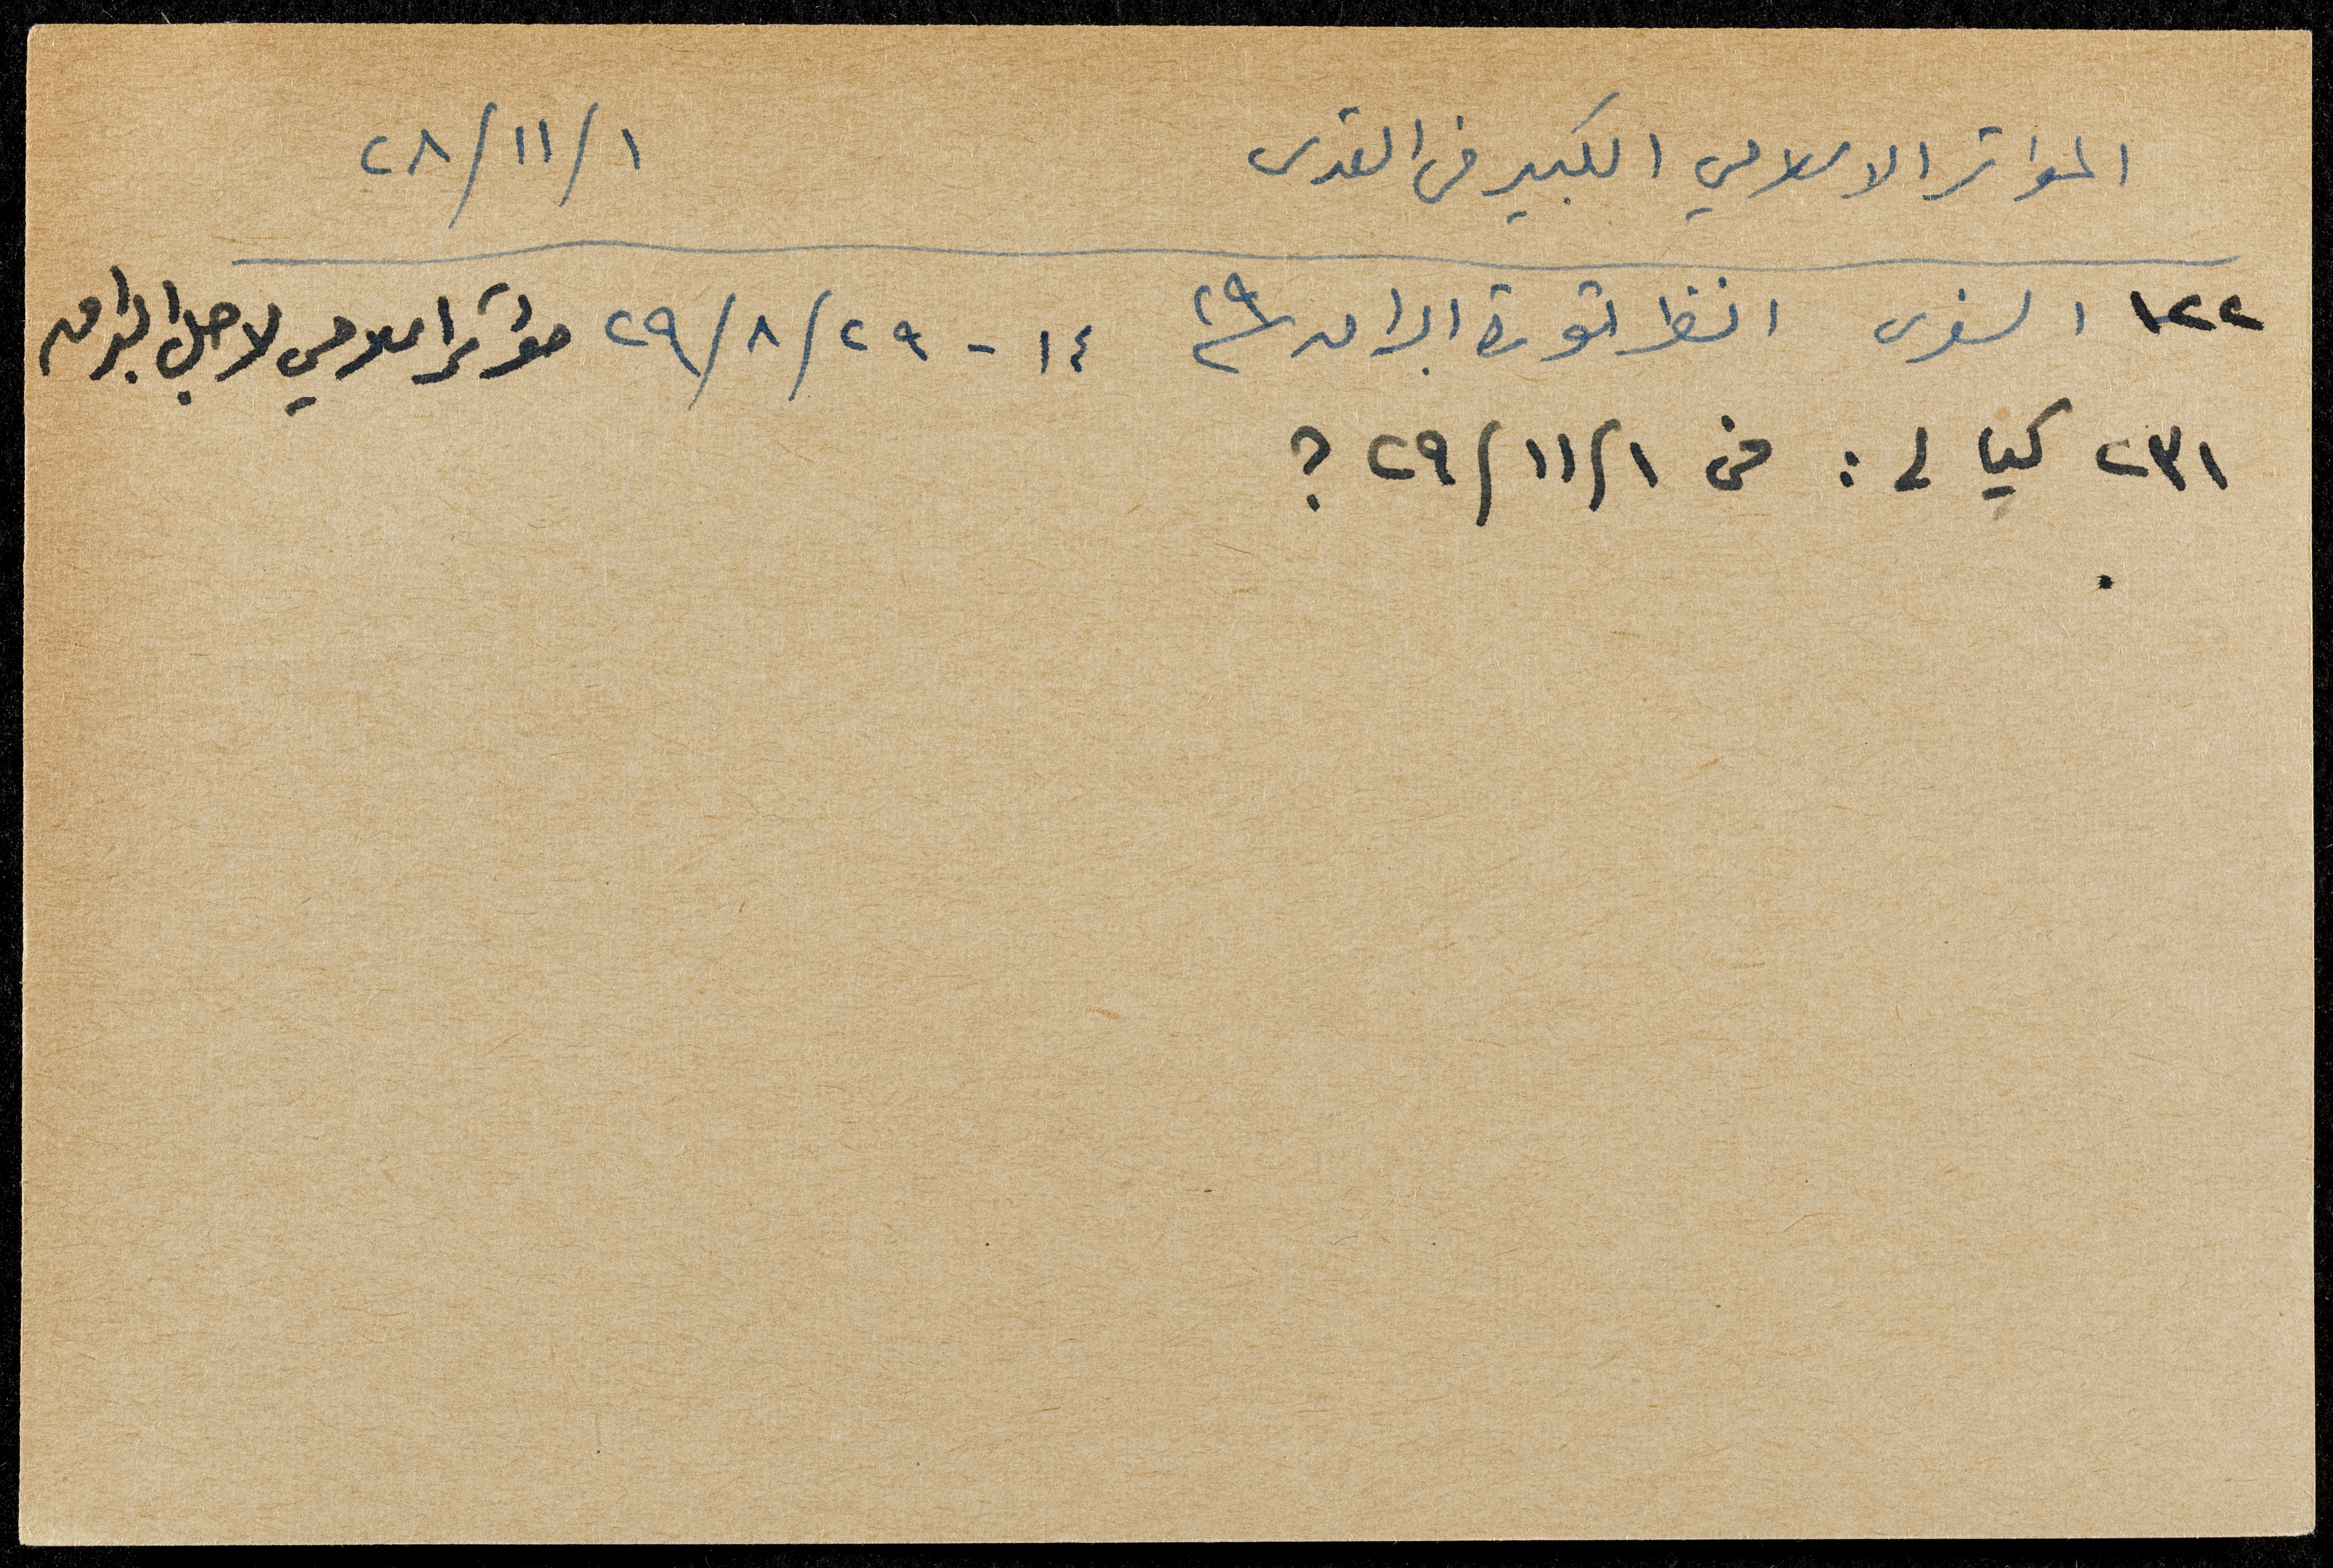 المؤاتمر الاسلامي الكبير في القدس ١/١١/٢٨
١٢٢ السفرى انظر ثورة البراق ٢٩ ١٤ - ٢٩/٨/٢٩ مؤتمر اسلامي لاجل البراق
٢٣١ كيالى : فى ١/١١/٢٩ ؟